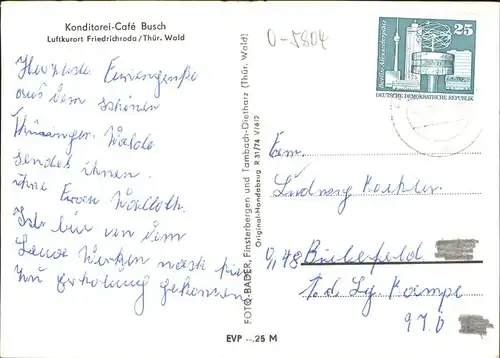 Konditorei-Café Busch
Luftkurort Friedrichroda/Thür. Wald
Herzliche
aus dem schönen
Thüringer Walde
sendet ihnen
ihre Frau
Ich bin von dem
Werken nach hier
zur Erholung gekommen
FOTO-BADER, Finsterbergen und Tambach-Dietharz (Thür. Wald)
Original-Handabzug R 31/74 V/6/2
EVP -.25 M
0-5804
25
Berlin, Alexanderplatz
DEUTSCHE DEMOKRATISCHE REPUBLIK
Fam.
Ludwig
48 Bielefeld
97 b